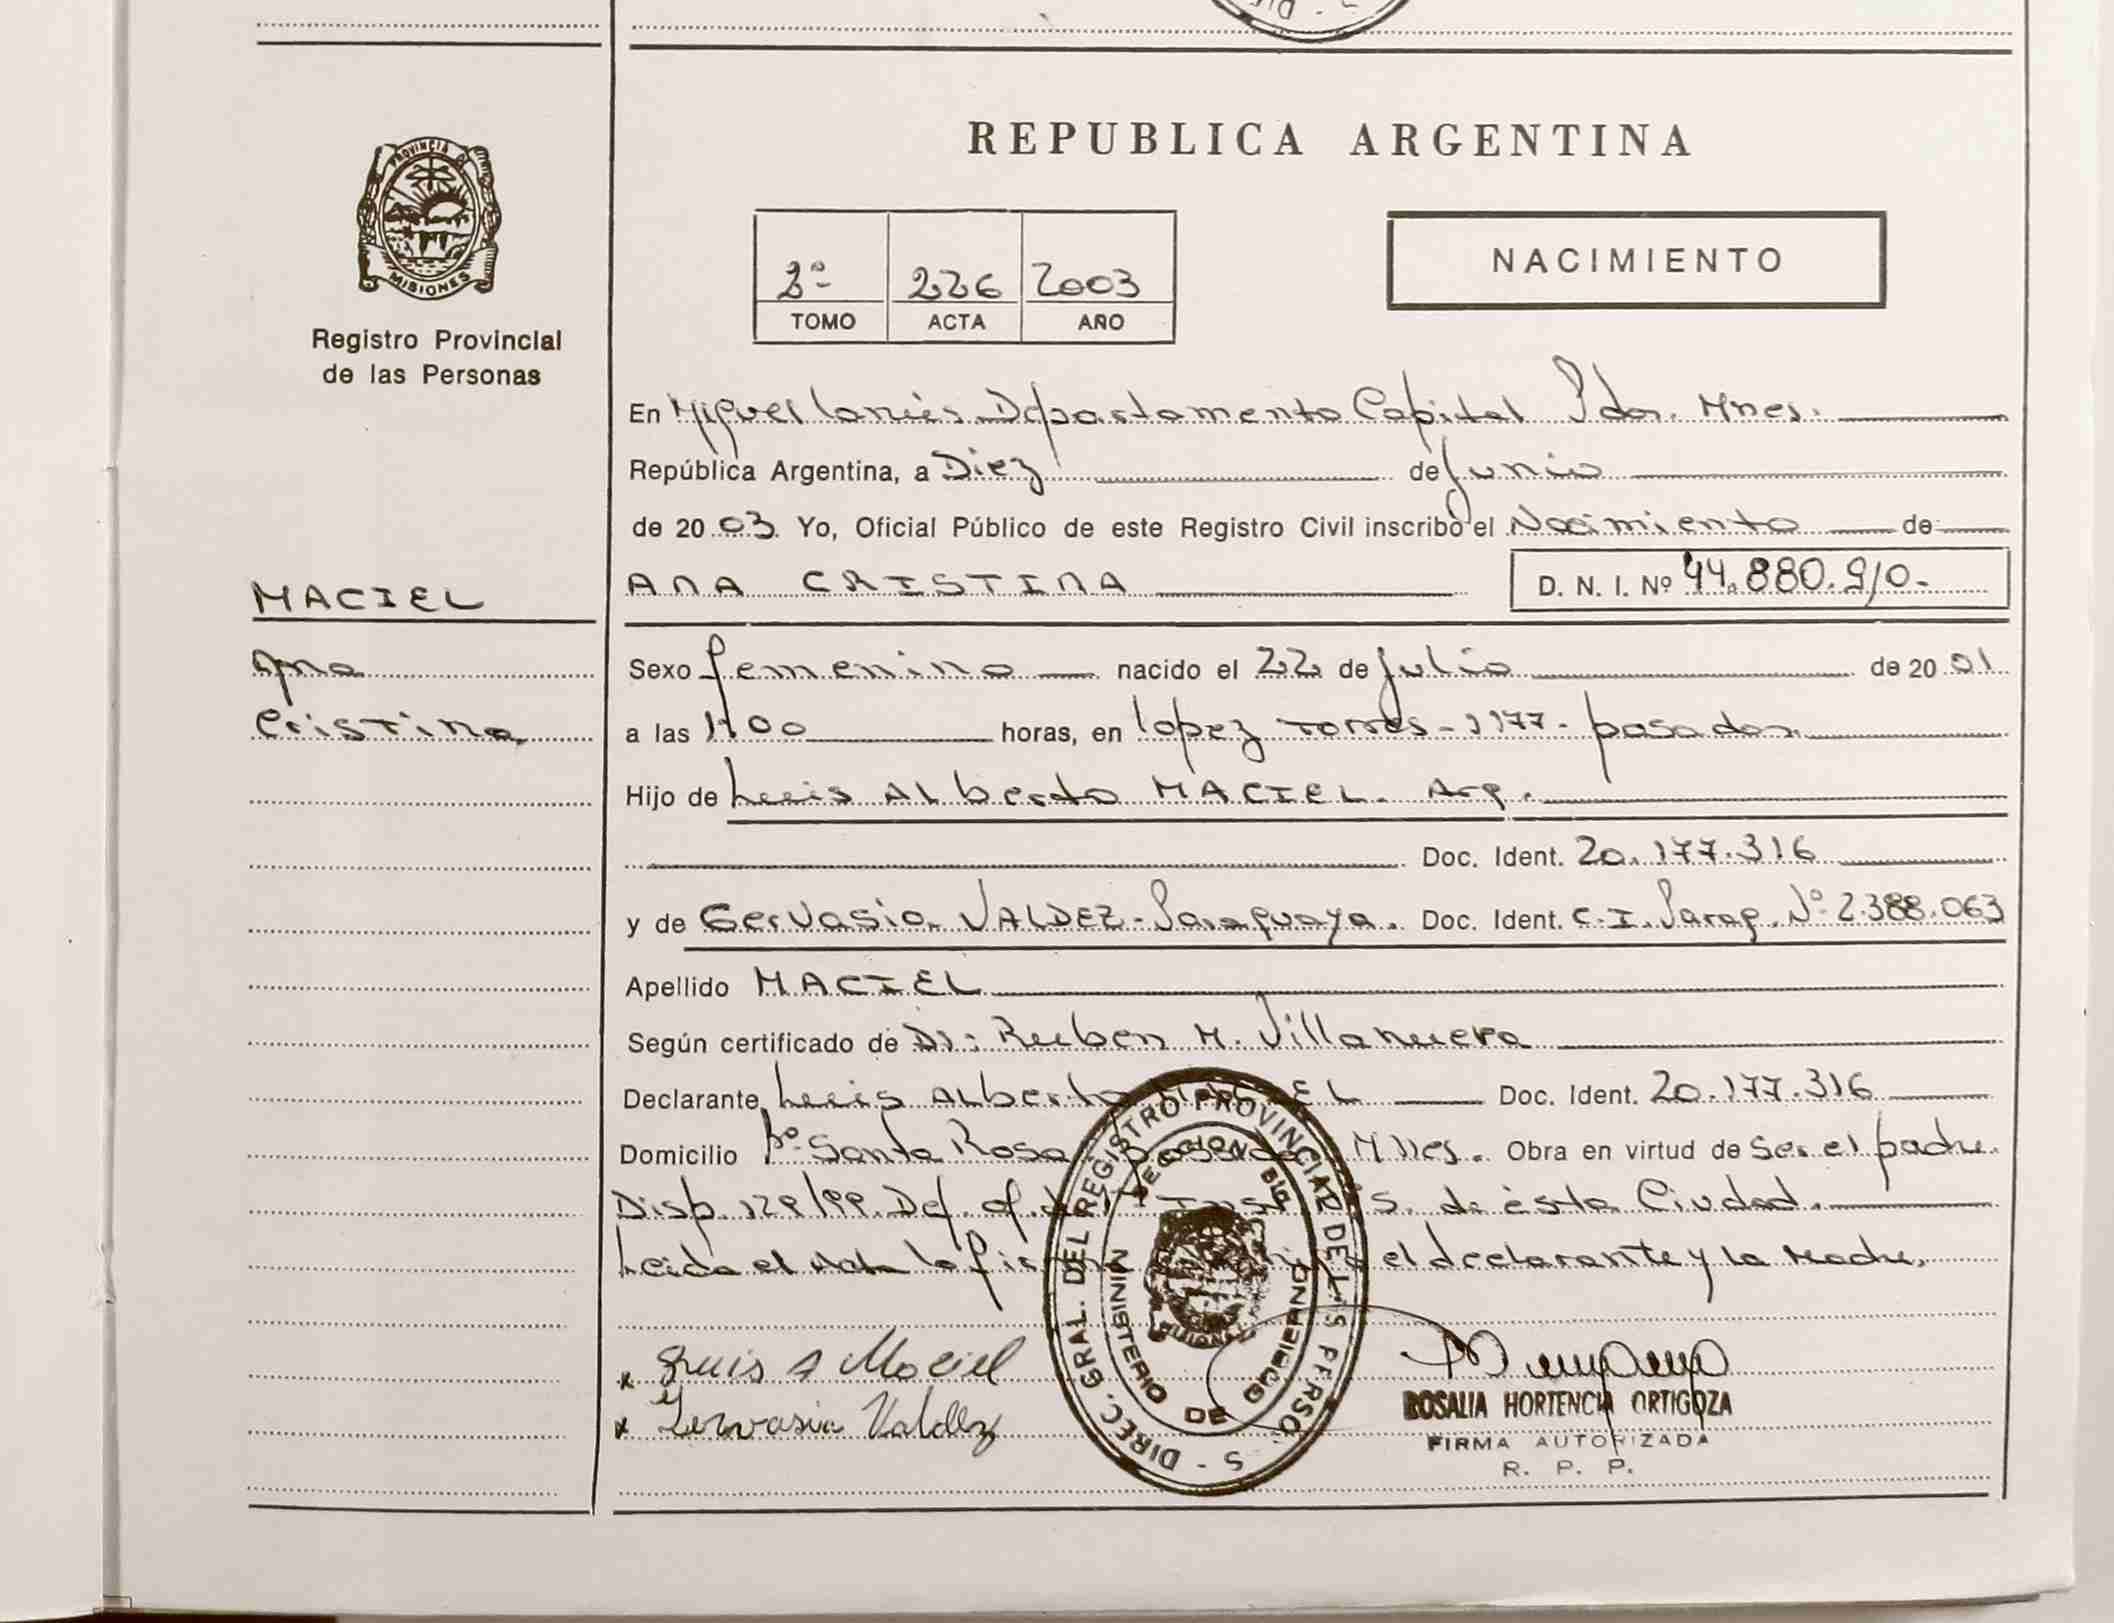 PROVINCIA DE
MISIONES
Registro Provincial
de las Personas
REPUBLICA ARGENTINA
2º 226 2003
TOMO ACTA AÑO
NACIMIENTO
En Miguel Lanús Departamento Capital Pdas. Mnes.
República Argentina, a Diez de Junio
de 2003 Yo, Oficial Público de este Registro Civil inscribo el Nacimiento de
MACIEL
Ana
Cristina
ANA CRISTINA D. N. I. Nº 44.880.910.-
Sexo femenino nacido el 22 de Julio de 2001
a las 1100 horas, en Lopez Torres - 1177 - posadas.
Hijo de Luis ALberto MACIEL. Arg.
Doc. Ident. 20.177.316
y de Gervasia VALDEZ - Paraguaya. Doc. Ident. C.I. Parag. Nº 2.388.063
Apellido MACIEL
Según certificado de Dr: Ruben M. Villanueva
Declarante Luis ALberto MACIEL Doc. Ident. 20.177.316
Domicilio Bº Santa Rosa Posadas Mnes. Obra en virtud de ser el padre
Disp. 129/99. Def. of. de S. de ésta Ciudad.
Leida el Acta la el declarante y la Madre.
x Luis A Maciel
x Gervasia Valdez
DIREC. GRAL. DEL REGISTRO PROVINCIAL DE LAS PERSONAS
MINISTERIO DE GOBIERNO
ROSALIA HORTENCIA ORTIGOZA
FIRMA AUTORIZADA
R. P. P.